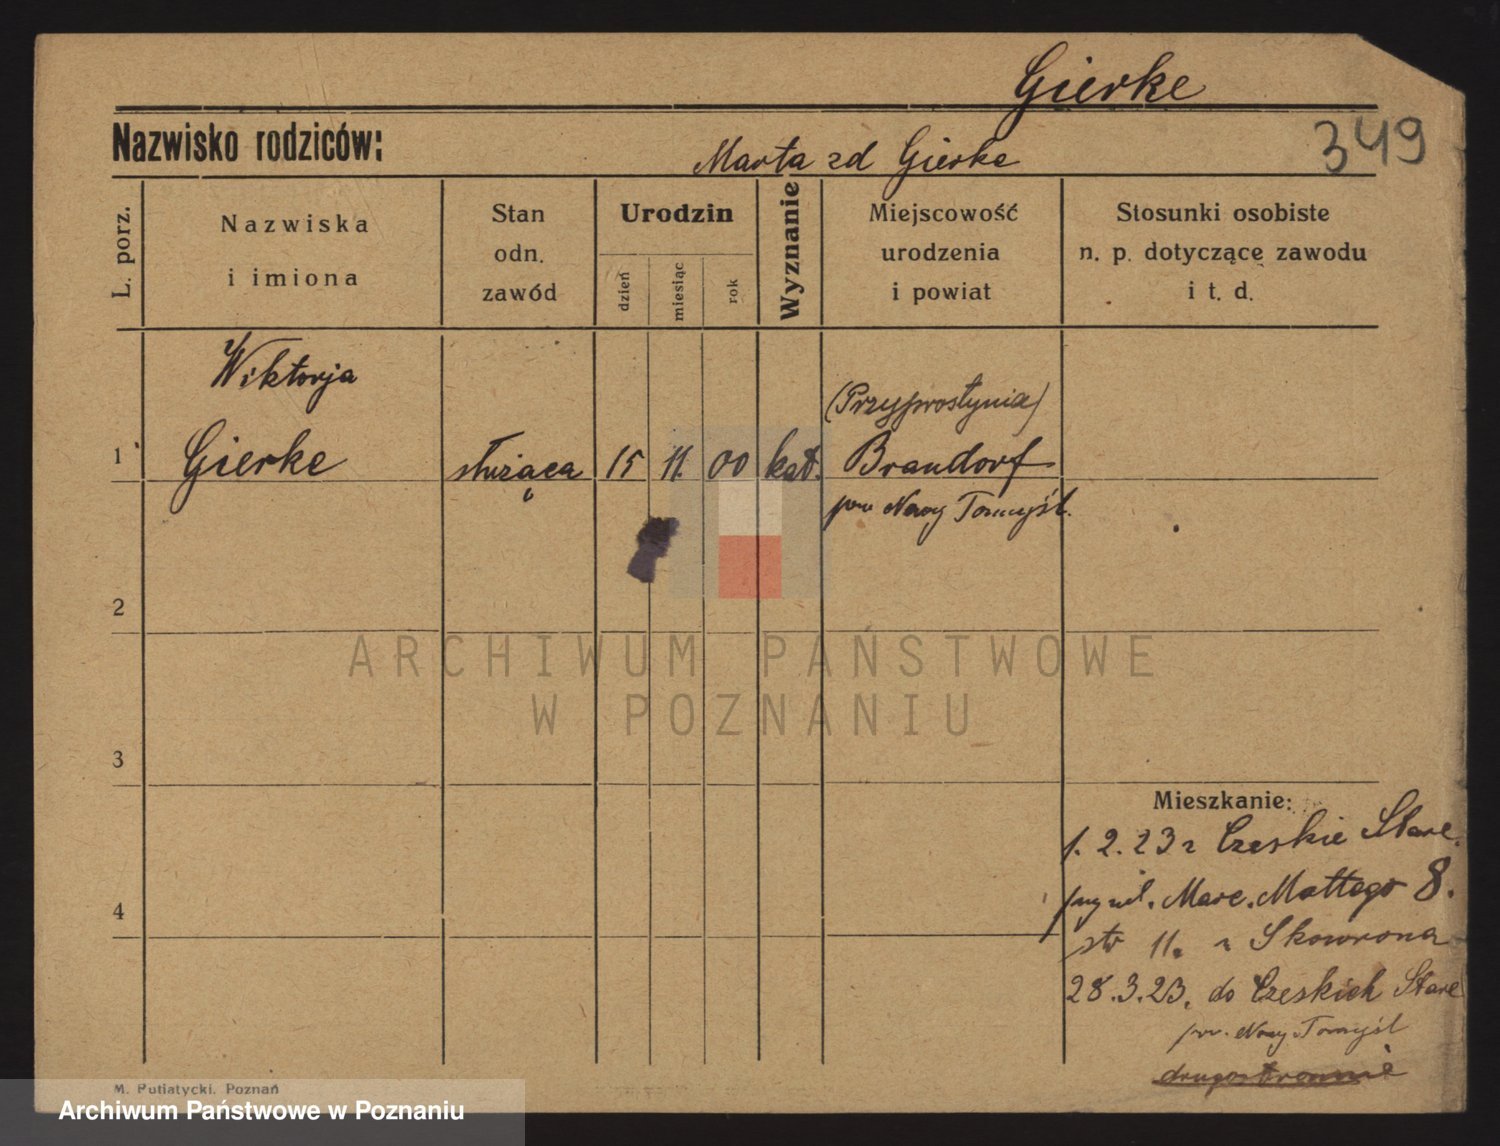 Gierke
349
Nazwisko rodziców:
Marta zd Gierke
L. porz.
Nazwiska
i imiona
Stan
odn.
zawód
Urodzin
dzień
miesiąc
rok
Wyznanie
Miejscowość
urodzenia
i powiat
Stosunki osobiste
n. p. dotyczące zawodu
i t. d.
Wiktorja
(Przyprostynia)
1 Gierke służąca 15 11. 00 kat. Brandorf
pow Nowy Tomyśl.
2
ARCHIWUM PAŃSTWOWE
W POZNANIU
3
Mieszkanie:
1. 2. 23 z Czeskie Stare.
4
Marc. Mottego 8.
str 11. Skowrona
28.3.23. do Czeskich Stare
pow. Nowy Tomyśl
drugostronnie
M. Putiatycki. Poznań
Archiwum Państwowe w Poznaniu